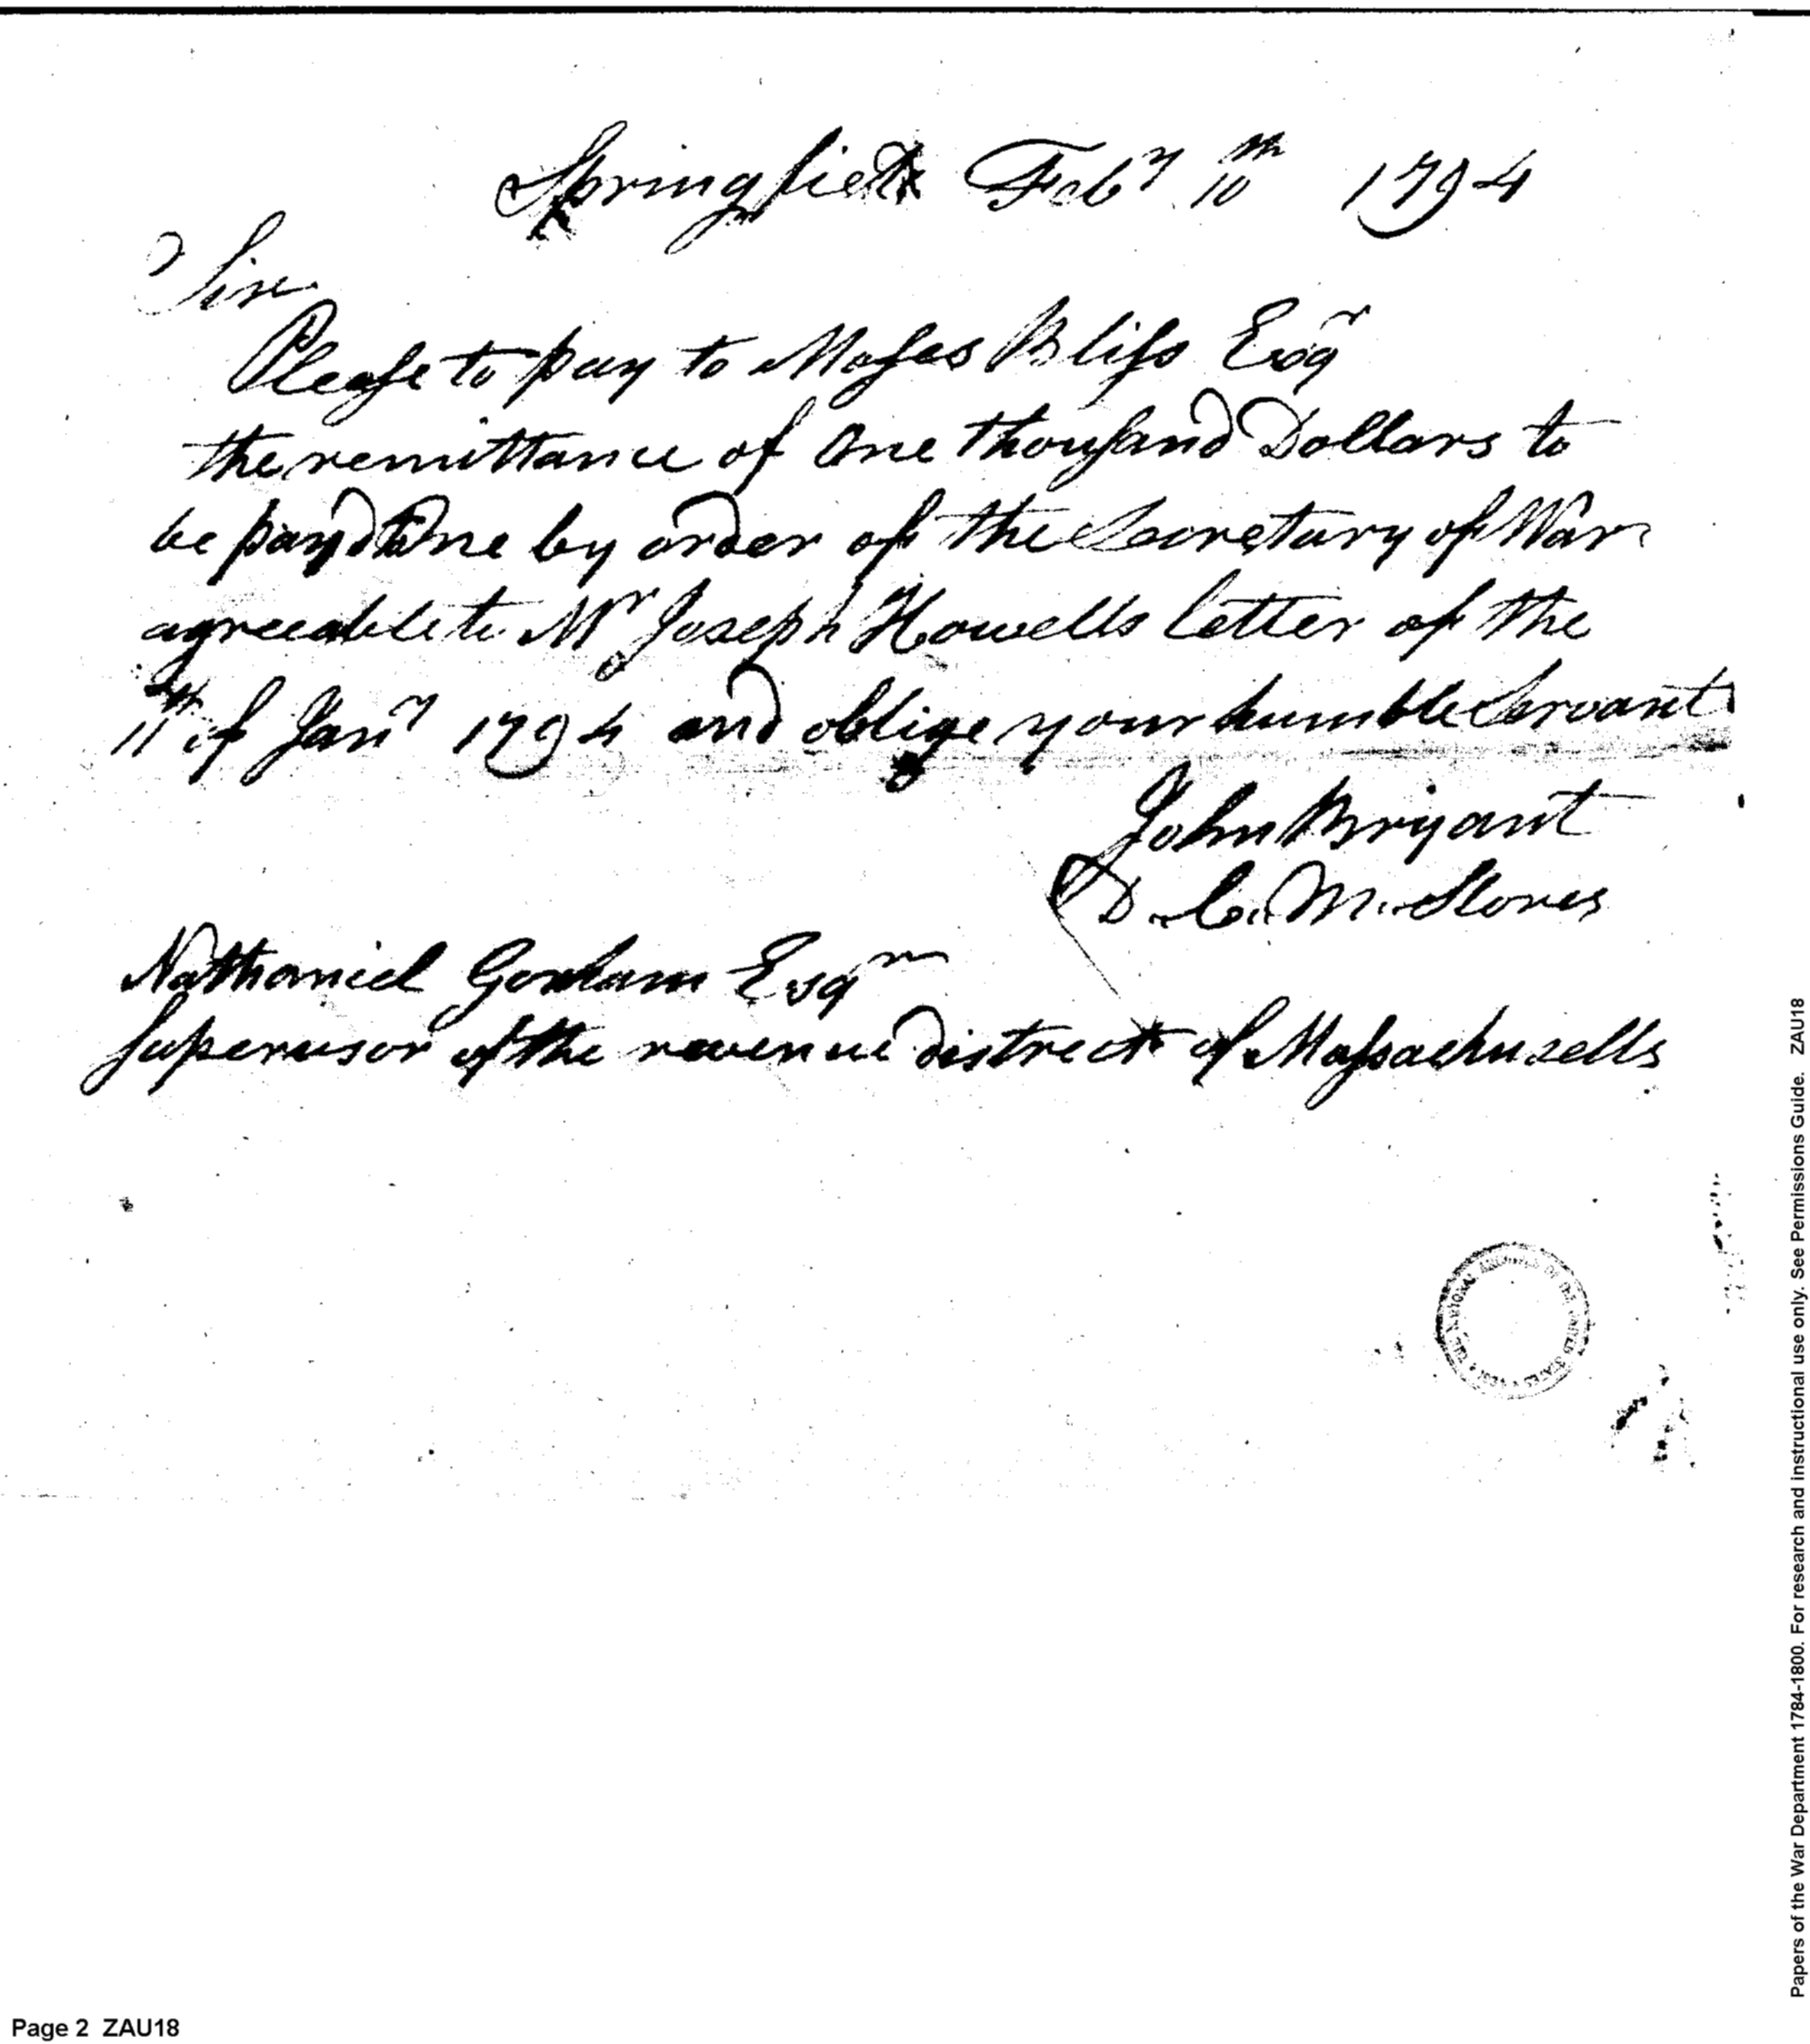 Springfield Feby 10th 1794
Sir
Please to pay to Moses Bliss Esqr
the remittance of One thousand Dollars to
be payd to me by order of the Secretary of War
agreeable to Mr Joseph Howells letter of the
11th of Jany 1794 and oblige your humble Servant
John Bryant
D. C. M. Stores
Nathaniel Gorham Esqr
Supervisor of the revenue district of Massachusetts
Papers of the War Department 1784-1800. For research and instructional use only. See Permissions Guide. ZAU18
Page 2 ZAU18